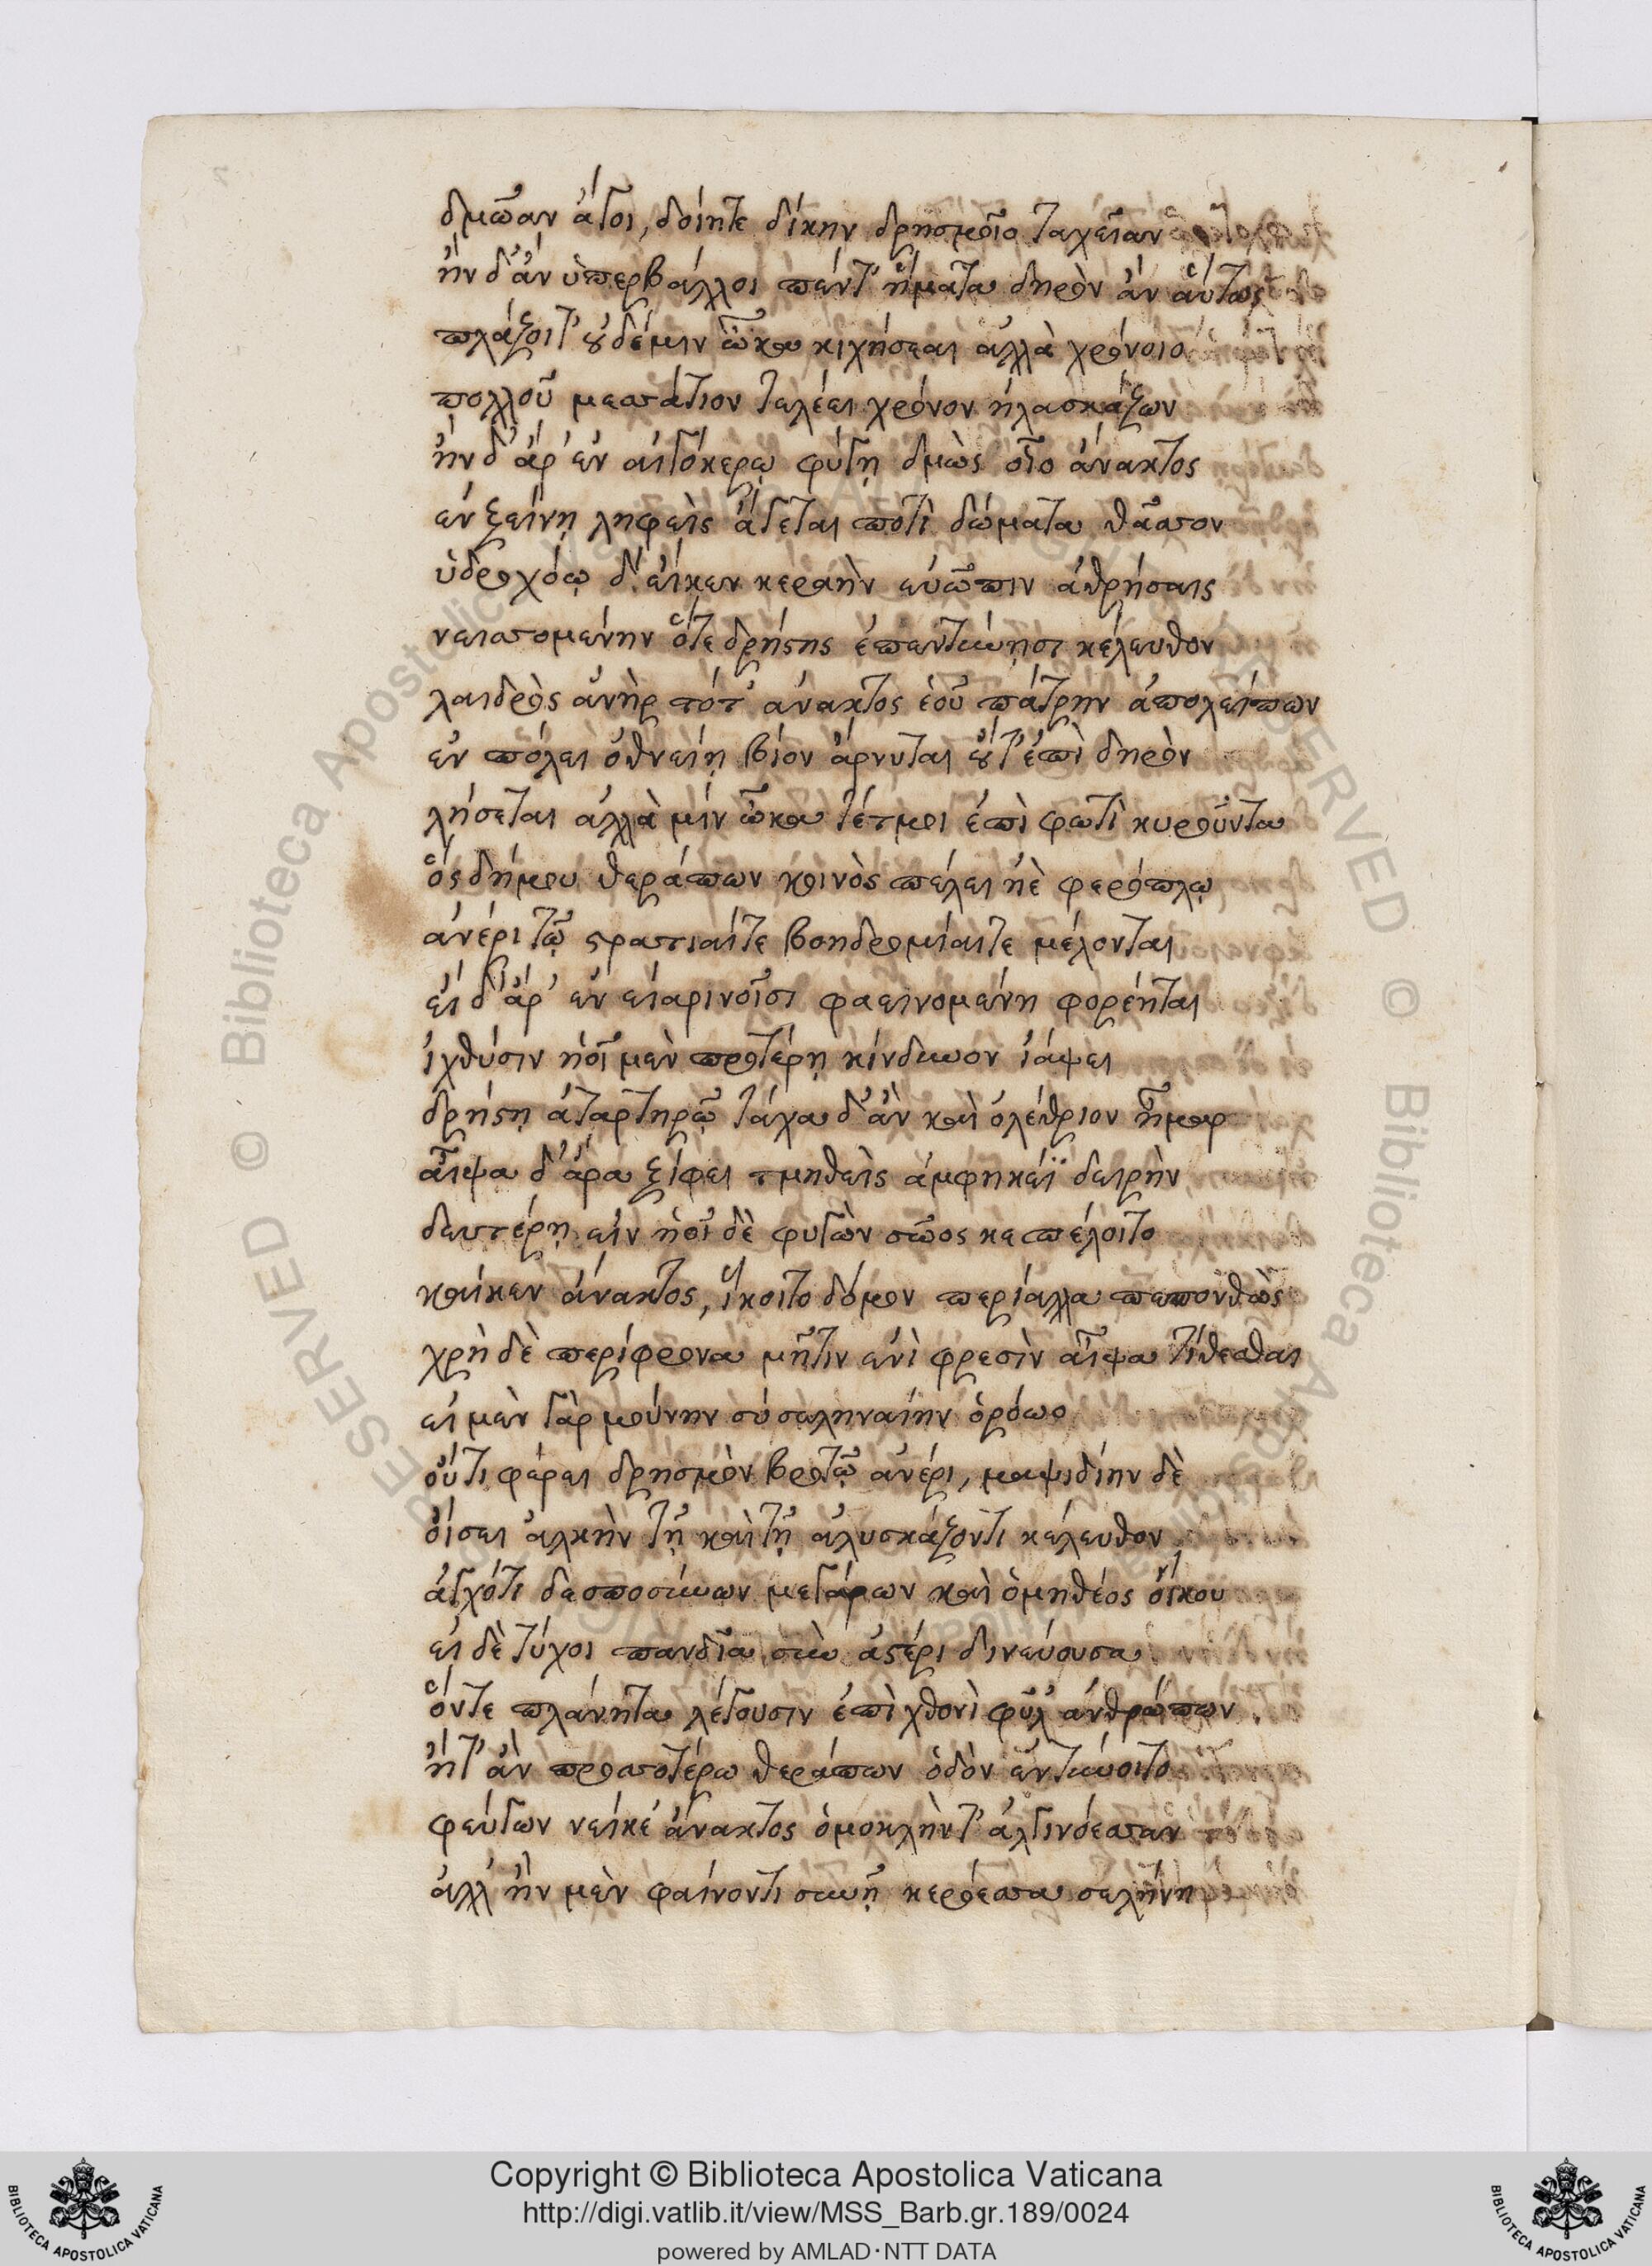 δμῶαν ἄγοι, δοίητε δίκην δρησμοῖο ταχεῖαν
ἢν δ' ἂν ὑπερβάλλοι πέντ' ἤματα δηρὸν ἂν αὕτως
πλάζοιτ' οὐδέ μιν ὦκα κιχήσεαι ἀλλὰ χρόνοιο
πολλοῦ μεσσάτιον τελέει χρόνον ἠλασκάζων
ἢν δ' ἄρ' ἐν αἰγόκερῳ φύγῃ δμὼς οἷο ἄνακτος
ἐν ξείνῃ ληφεὶς ἄγεται ποτὶ δώματα θᾶσσον
ὑδροχόῳ δ' εἴ κεν κεραὴν εὐῶπιν ἀθρήσαις
νεισσομένην ὅτε δρήστης ἐπεντύνῃσι κέλευθον
λαιδρὸς ἀνὴρ τότ' ἄνακτος ἑοῦ πάτρην ἀπολείπων
ἐν πόλει ὀθνείῃ βίον ἄρνυται οὔτ' ἐπὶ δηρὸν
λήσεται ἀλλὰ μὶν ὦκα τέτμοι ἐπὶ φωτὶ κυροῦντα
ὅς δήμου θεράπων κοινὸς πέλει ἠὲ φερόπλῳ
ἀνέρι τῷ στρατιαί τε βοηδρομίαι τε μέλονται
εἰ δ' ἄρ' ἐν εἰαρινοῖσι φαεινομένη φορέηται
ἰχθύσιν ἠοῖ μὲν προτέρῃ κίνδυνον ἰάψει
δρήστῃ ἀταρτηρῷ τάχα δ' ἂν καὶ ὀλέθριον ἦμαρ
αἶψα δ' ἄρα ξίφει τμηθεὶς ἀμφήκεϊ δειρὴν
δευτέρῃ εἰν ἠοῖ δὲ φυγὼν σῶος κε πέλοιτο
καί κεν ἄνακτος, ἵκοιτο δόμον περίαλλα πεπονθὼς
χρὴ δὲ περίφρονα μῆτιν ἐνὶ φρεσὶν αἶψα τίθεσθαι
εἰ μὲν γὰρ μούνην σύ σεληναίην ὁρόωο
οὔτι φέρει δρησμὸν βροτῷ ἀνέρι, μαψιδίην δὲ
οἴσει ἀλκὴν τῇ καὶ τῇ ἀλυσκάζοντι κέλευθον
ἀγχότι δεσποσύνων μεγάρων καὶ ὁμηθέος οἴκου
εἰ δὲ τύχοι πανδῖα σὺν ἀστέρι δινεύουσα
ὅν τε πλάνητα λέγουσιν ἐπὶ χθονὶ φῦλ' ἀνθρώπων
ἤτ' ἂν προσσοτέρω θεράπων ὁδὸν ἐντύνοιτο
φεύγων νείκε' ἄνακτος ὁμοκλήν τ' ἀλγινόεσσαν
ἀλλ' ἢν μὲν φαίνοντι συνῇ κερόεσσα σελήνη
RESERVED © Biblioteca Apostolica Vaticana
Copyright © Biblioteca Apostolica Vaticana
http://digi.vatlib.it/view/MSS_Barb.gr.189/0024
powered by AMLAD·NTT DATA
BIBLIOTECA APOSTOLICA VATICANA
BIBLIOTECA APOSTOLICA VATICANA